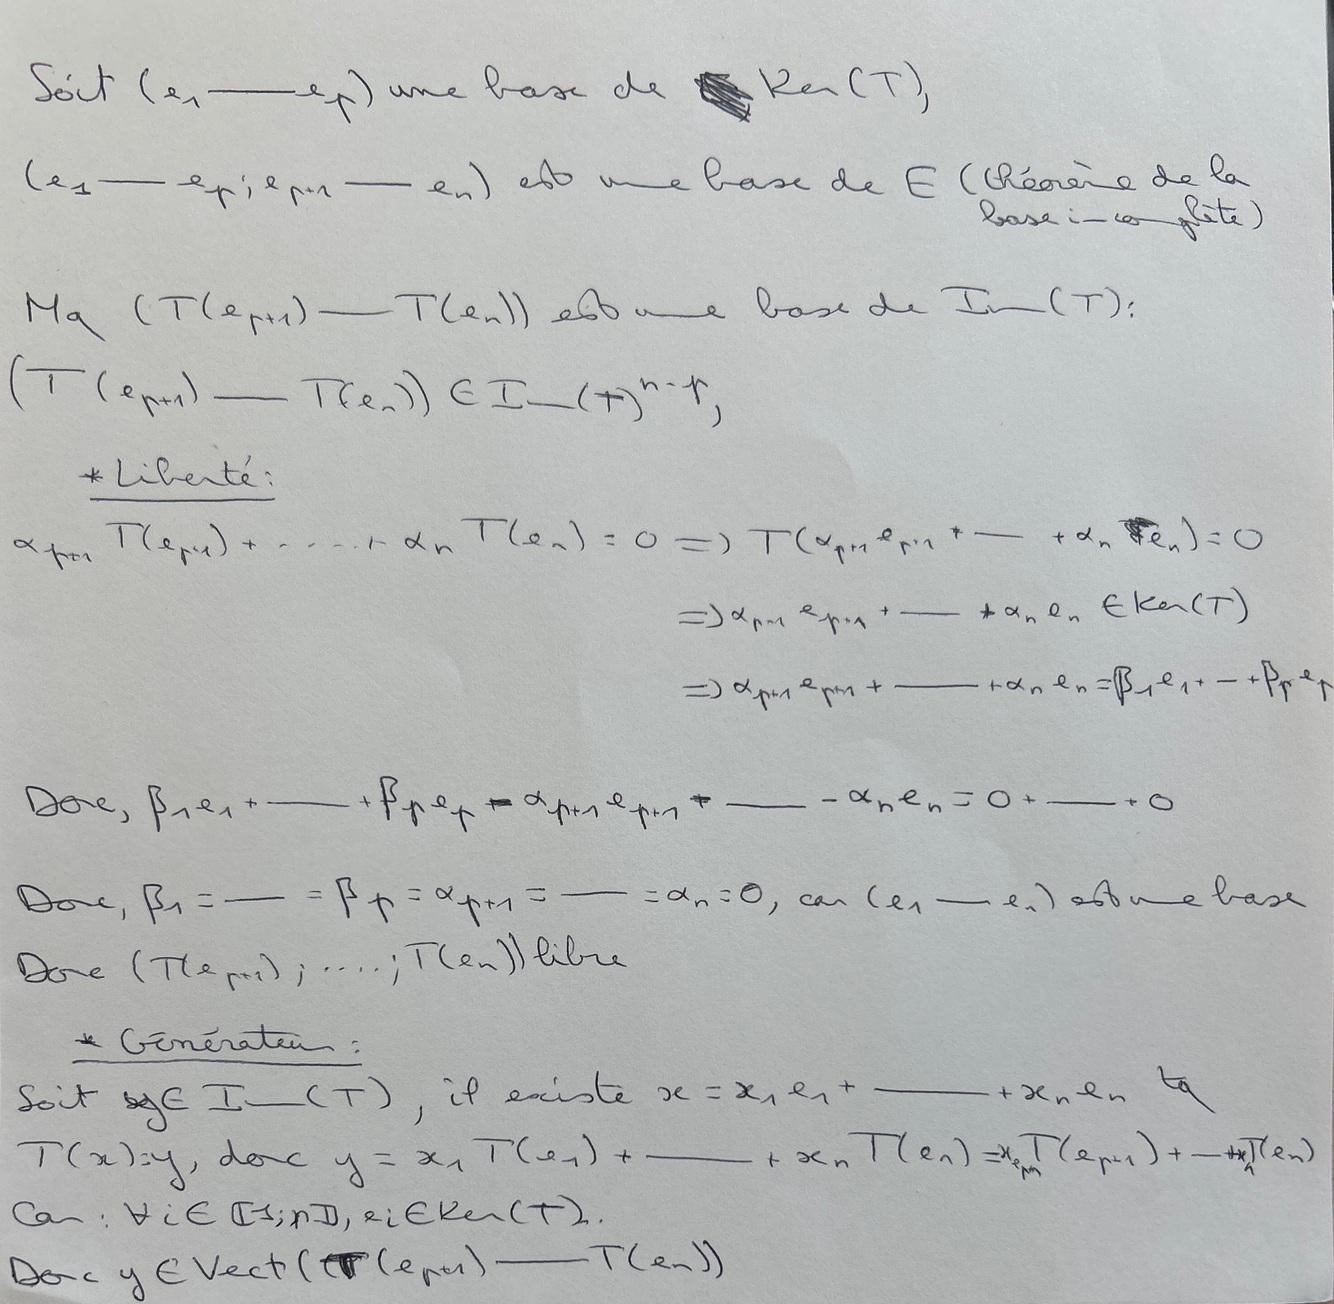 Soit (e₁ — eₚ) une base de Ker(T),
(e₁ — eₚ; eₚ₊₁ — eₙ) est une base de E (théorème de la
base incomplète)
Mq (T(eₚ₊₁) — T(eₙ)) est une base de Im(T):
(T(eₚ₊₁) — T(eₙ)) ∈ Im(T)ⁿ⁻ᵖ,
* Liberté:
αₚ₊₁ T(eₚ₊₁) + ..... + αₙ T(eₙ) = 0 => T(αₚ₊₁ eₚ₊₁ + — + αₙ eₙ) = 0
=> αₚ₊₁ eₚ₊₁ + — + αₙ eₙ ∈ Ker(T)
=> αₚ₊₁ eₚ₊₁ + — + αₙ eₙ = β₁e₁ + — + βₚ eₚ
Donc, β₁e₁ + — + βₚeₚ - αₚ₊₁eₚ₊₁ - — - αₙeₙ = 0 + — + 0
Donc, β₁ = — = βₚ = αₚ₊₁ = — = αₙ = 0, car (e₁ — eₙ) est une base
Donc (T(eₚ₊₁); ....; T(eₙ)) libre
* Générateur:
Soit y ∈ Im(T), il existe x = x₁e₁ + — + xₙeₙ tq
T(x)=y, donc y = x₁ T(e₁) + — + xₙ T(eₙ) = xₚ₊₁T(eₚ₊₁) + — + xₙT(eₙ)
Car: ∀i∈⟦1;p⟧, eᵢ∈Ker(T).
Donc y ∈ Vect(T(eₚ₊₁) — T(eₙ))